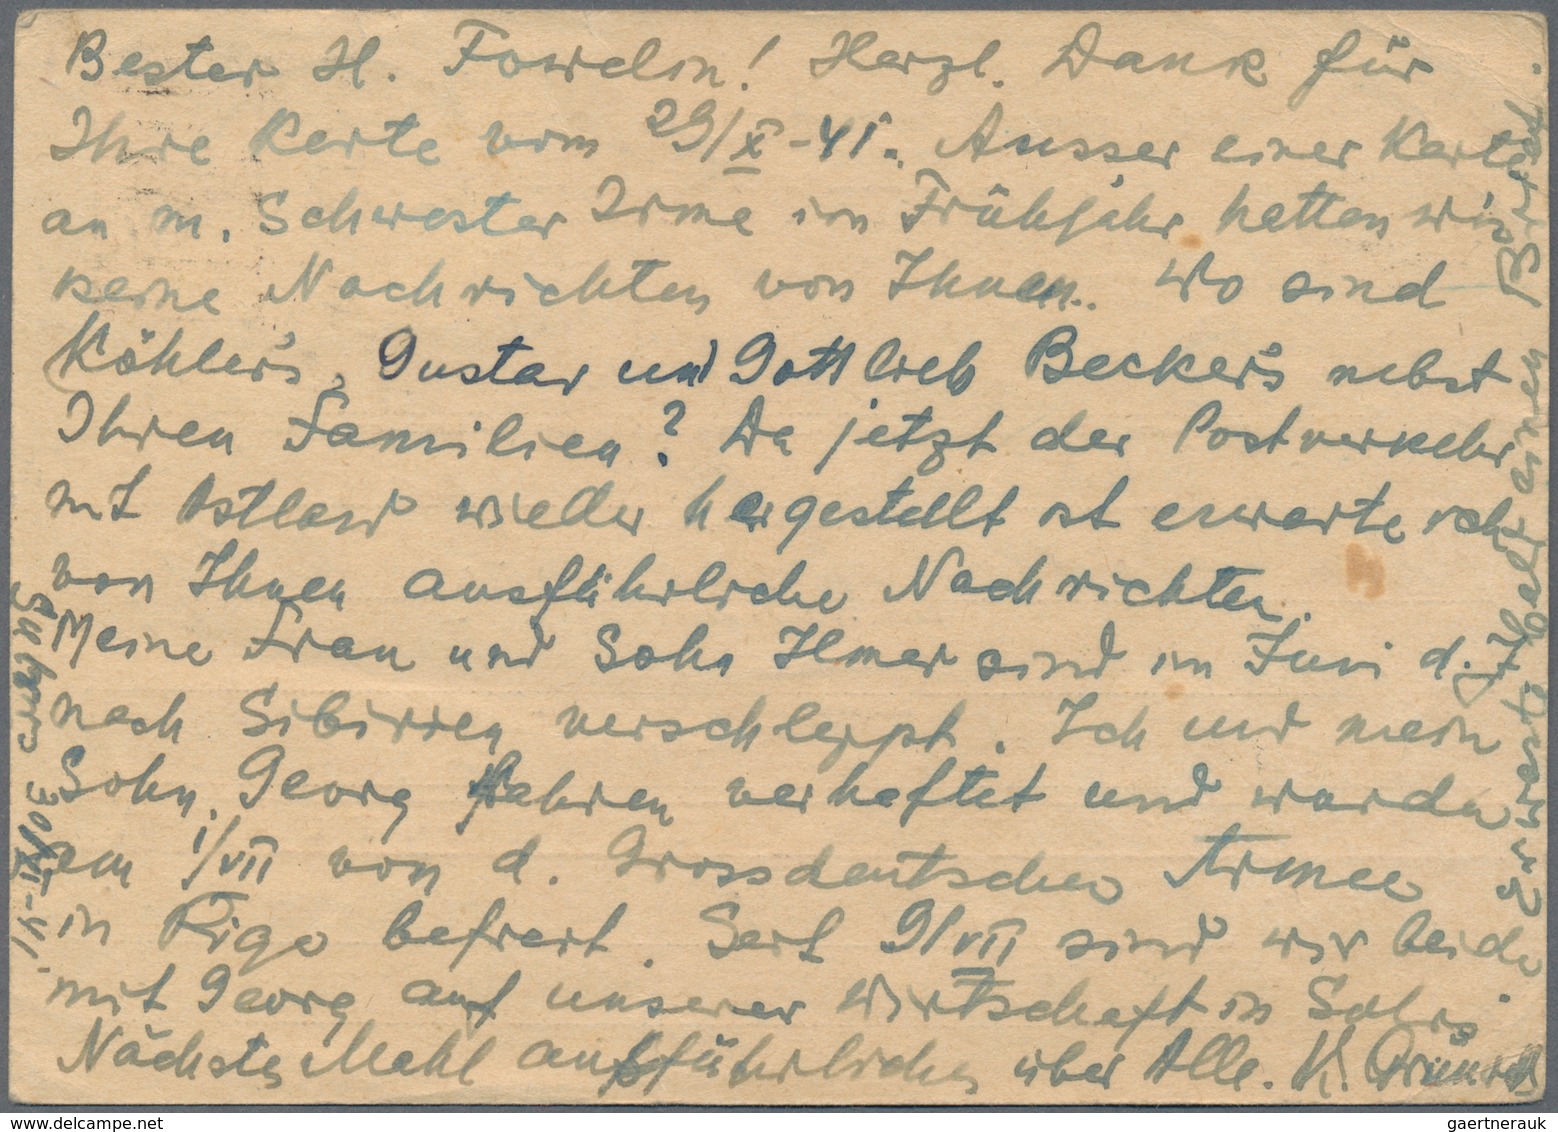 Bester H. Fowelin! Herzl. Dank für
Ihre Karte vom 29/X-41. Ausser einer Karte
an m. Schwester Irma im Frühjahr hatten wir
keine Nachrichten von Ihnen. Wo sind
Köhler's, Gustav und Gottlieb Becker's nebst
Ihren Familien? Da jetzt der Postverkehr
mit Ostland wieder hergestellt ist erwarte ich
von Ihnen ausführliche Nachrichten.
Meine Frau und Sohn Ilmar sind im Juni d. J.
nach Sibirien verschleppt. Ich und mein
Sohn Georg waren verhaftet und wurden
am 1/VII von d. Grossdeutschen Armee
in Riga befreit. Seit 9/VII sind wir beide
mit Georg auf unserer Wirtschaft in
Nächstes Mahl ausführlicher über Alle. K.
30/XI-41.
Erwartet halt einen